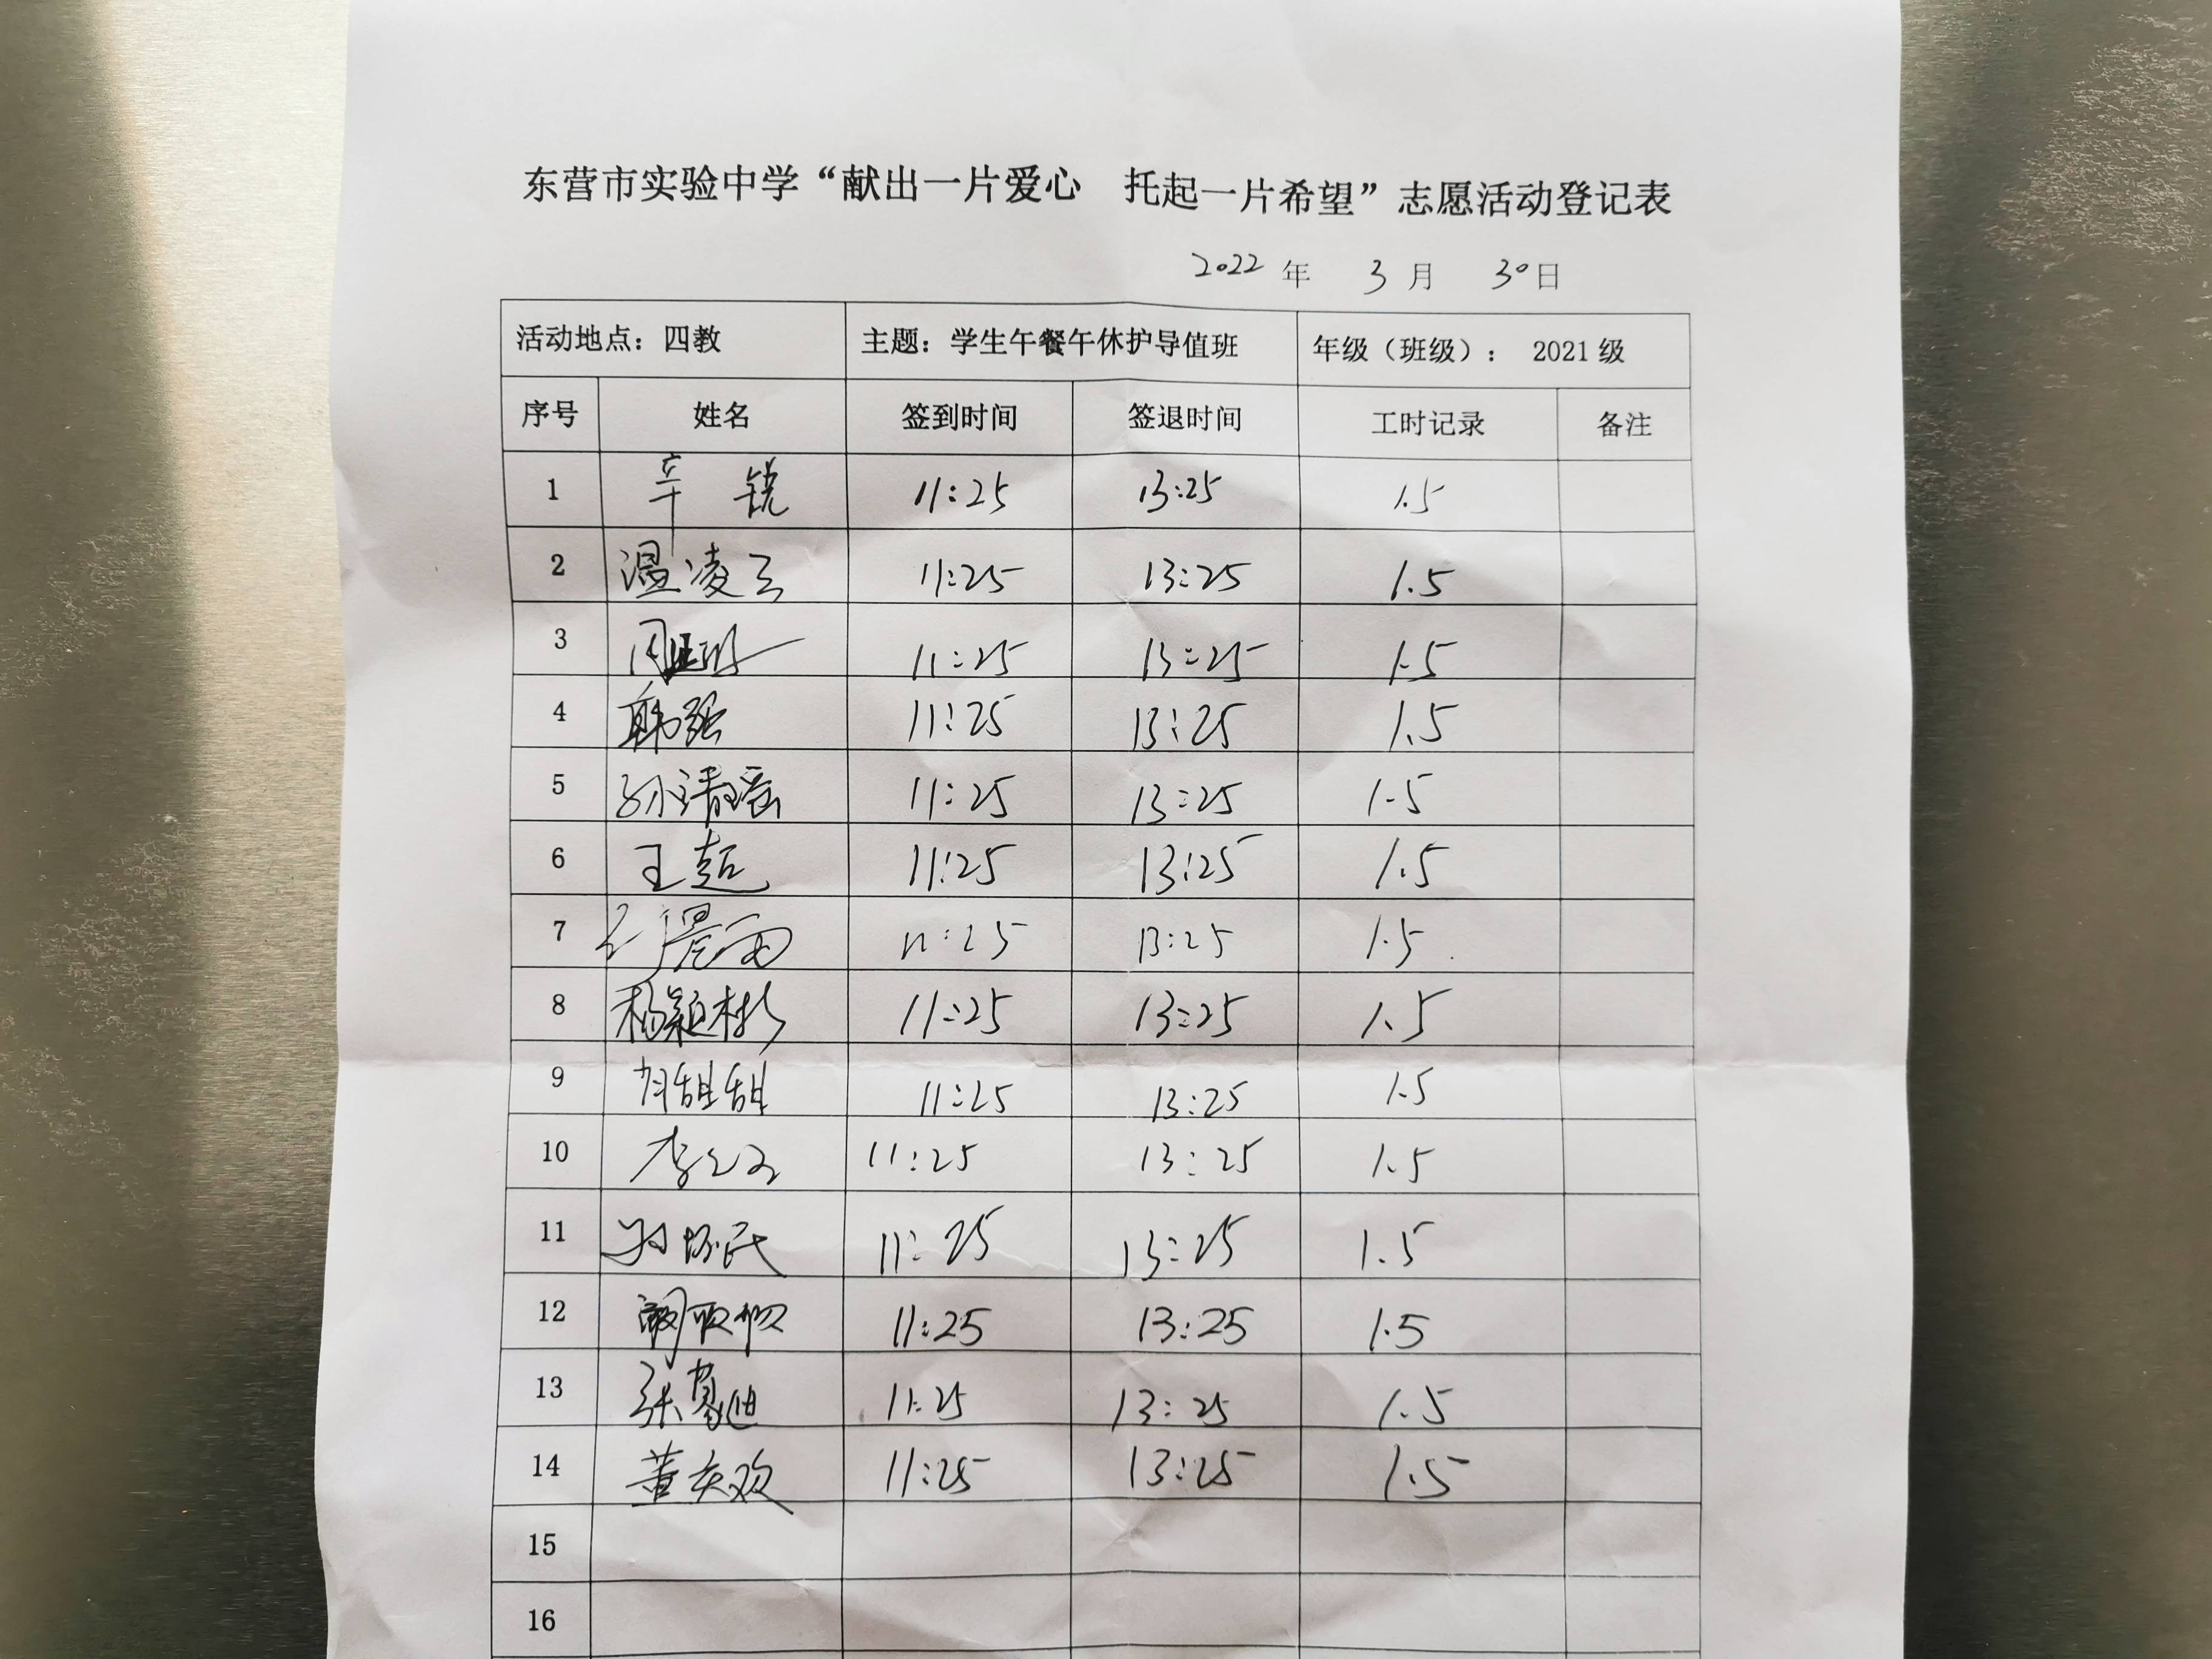 东营市实验中学“献出一片爱心 托起一片希望”志愿活动登记表
2022 年 3 月 30日
活动地点：四教 主题：学生午餐午休护导值班 年级（班级）： 2021 级
序号 姓名 签到时间 签退时间 工时记录 备注
1 辛锐 11:25 13:25 1.5
2 温凌云 11:25 13:25 1.5
3 11:25 13:25 1.5
4 韩强 11:25 13:25 1.5
5 孙靖瑶 11:25 13:25 1.5
6 王超 11:25 13:25 1.5
7 11:25 13:25 1.5
8 杨颖彬 11:25 13:25 1.5
9 甜甜 11:25 13:25 1.5
10 李 11:25 13:25 1.5
11 民 11:25 13:25 1.5
12 11:25 13:25 1.5
13 张 迪 11:25 13:25 1.5
14 董 欢 11:25 13:25 1.5
15
16